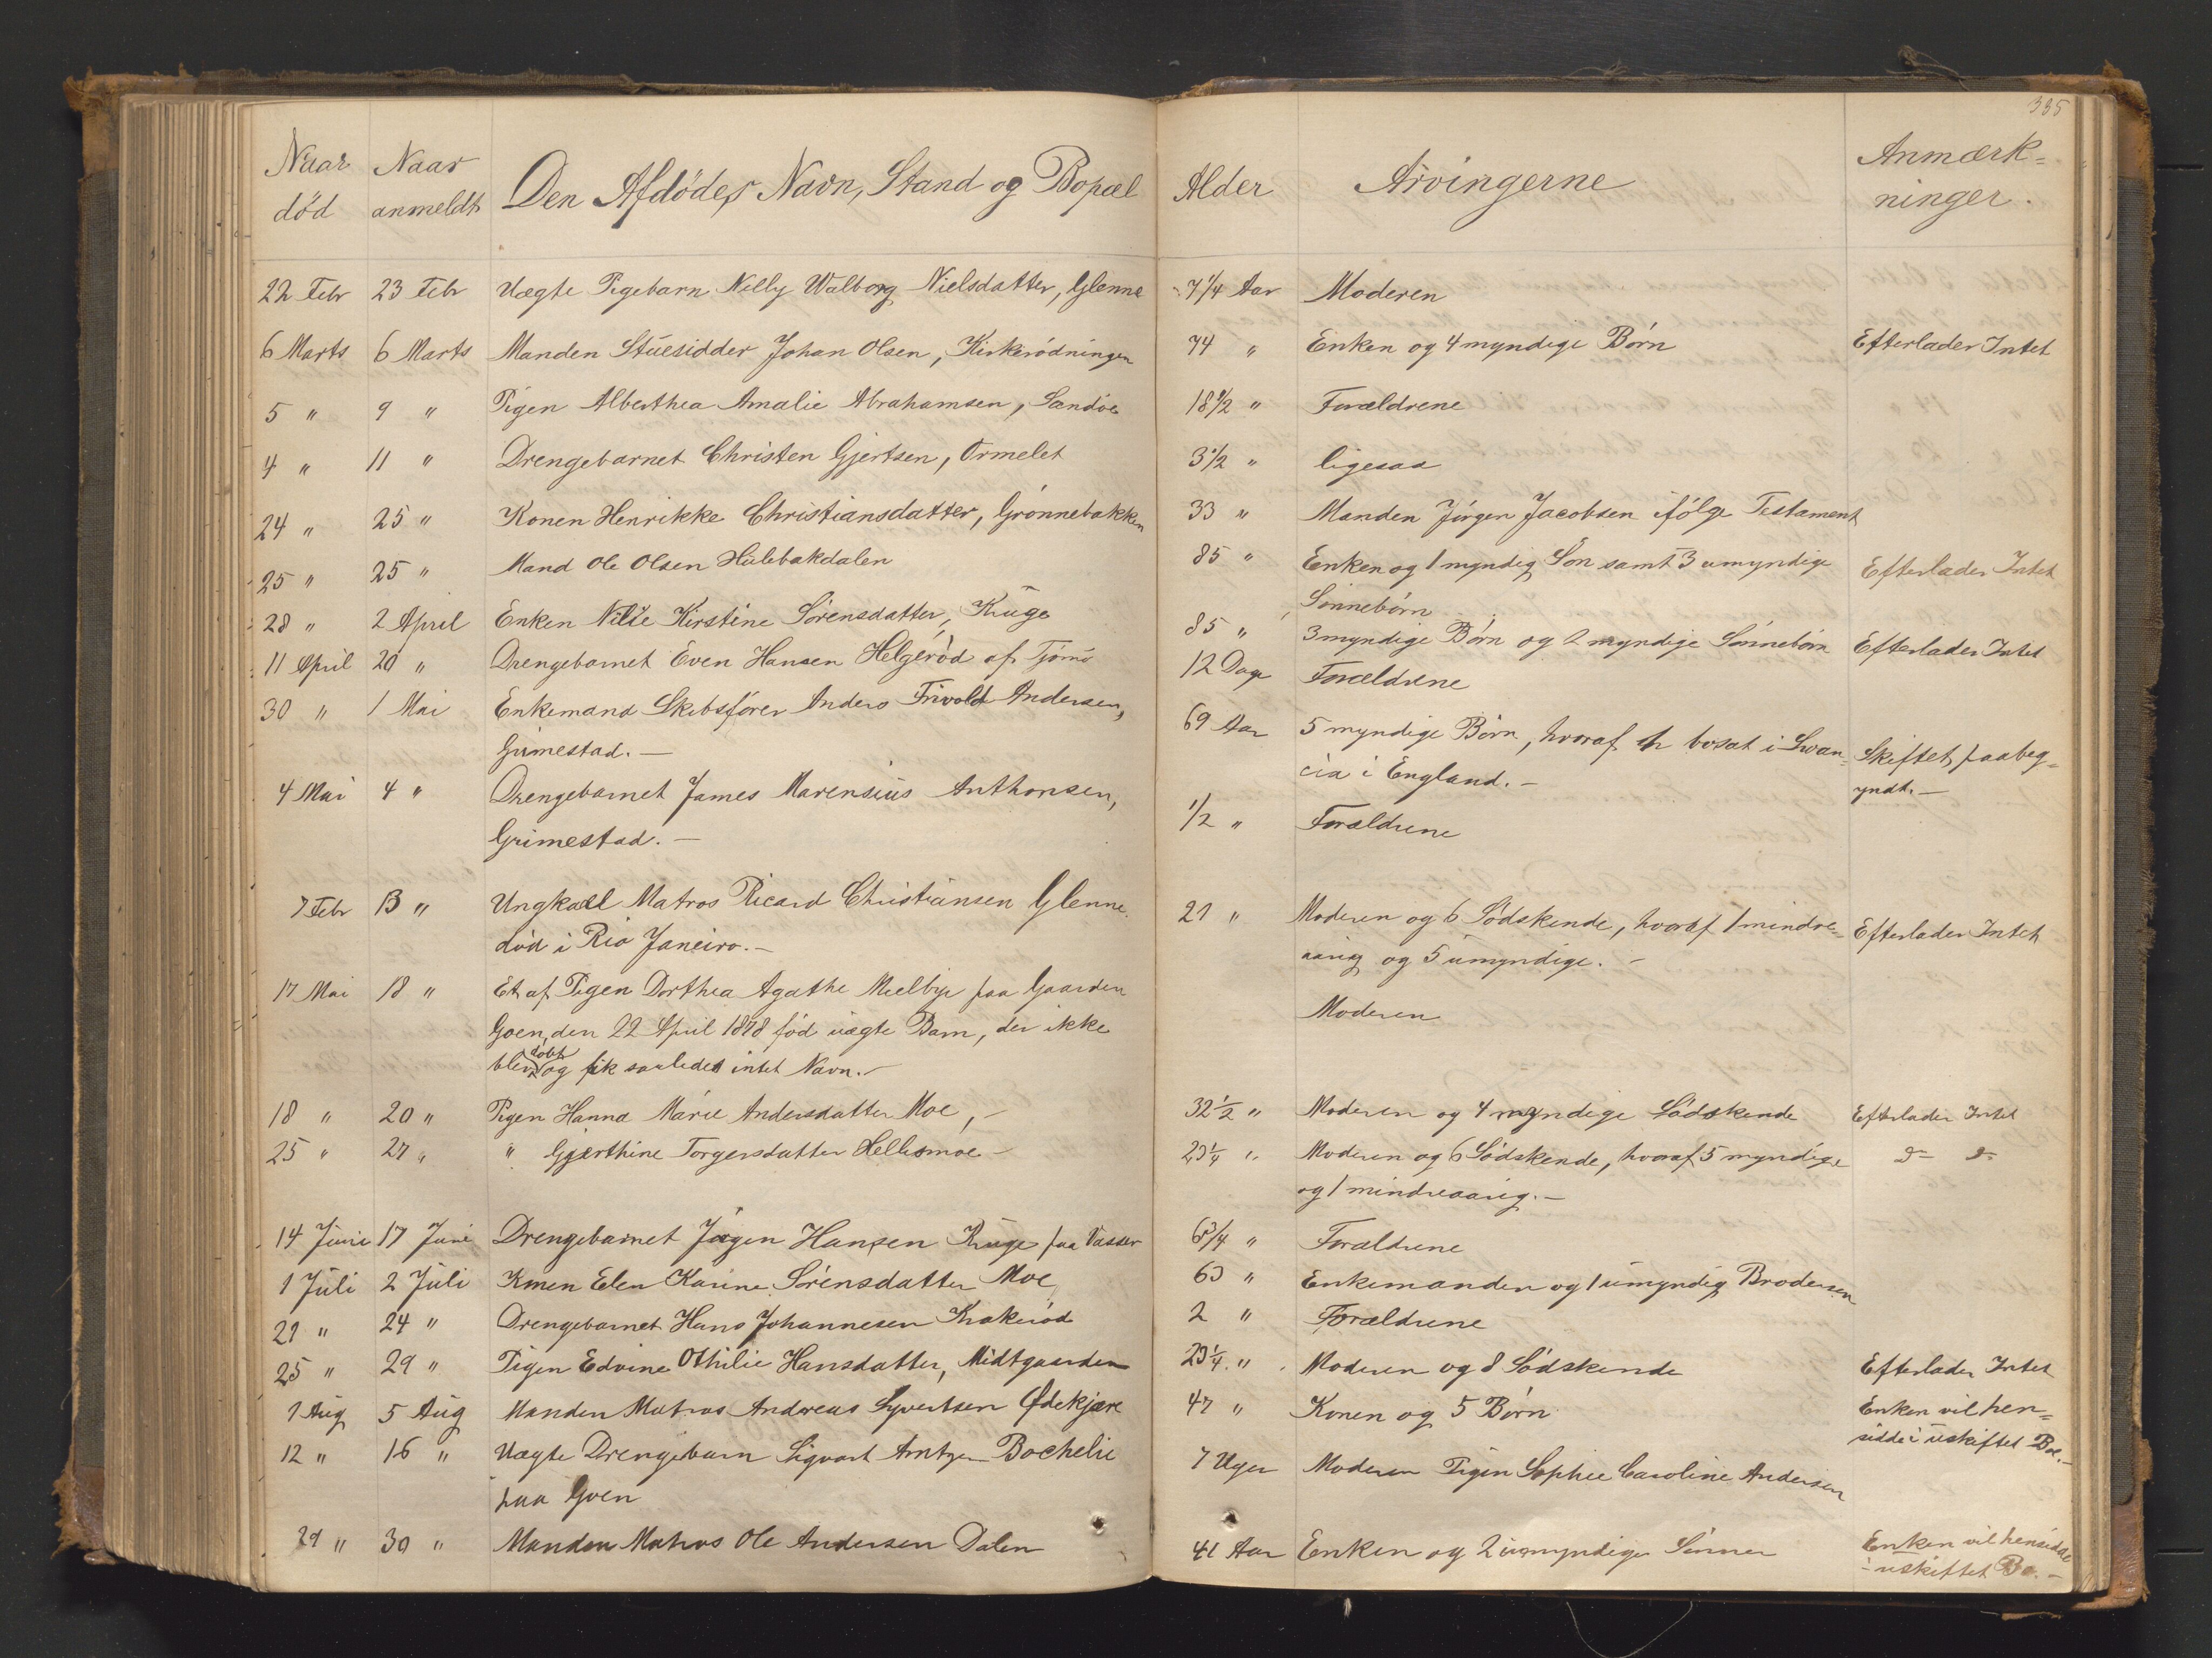 335
Naar død | Naar anmeldt | Den Afdødes Navn, Stand og Bopæl | Alder | Arvingerne | Anmærk=
ninger.
22 Febr | 23 Febr | Uægte Pigebarn Nelly Walborg Nielsdatter, Glenne | 7 1/4 Aar | Moderen
6 Marts | 6 Marts | Manden Stuesidder Johan Olsen, Kirkerødningen | 74 " | Enken og 4 myndige Børn | Efterlader Intet
5 " | 9 " | Pigen Alberthea Amalie Abrahamsen, Sandøe | 18 1/2 " | Forældrene
4 " | 11 " | Drengebarnet Christen Gjertsen, Ormelet | 3 1/2 " | ligesaa
24 " | 25 " | Konen Henrikke Christiansdatter, Grønnebakken | 33 " | Manden Jørgen Jacobsen ifølge Testament
25 " | 25 " | Mand Ole Olsen Hulebakdalen | 85 " | Enken og 1 myndig Søn samt 3 umyndige | Efterlader Intet
Sønnebørn
28 " | 2 April | Enken Nilie Kirstine Sørensdatter, Kruge | 85 " | 3 myndige Børn og 2 myndige Sønnebørn | Efterlader Intet
11 April | 20 " | Drengebarnet Even Hansen Helgerød af Tjømø | 12 Dage | Forældrene
30 " | 1 Mai | Enkemand Skibsfører Anders Trivold Andersen, | 69 Aar | 5 myndige Børn, hvoraf en bosat i Swan= | Skiftet paabeg=
Grimestad. — | cia i England. — | yndt. —
4 Mai | 4 " | Drengebarnet James Marensius Anthonsen, | 1/2 " | Forældrene
Grimestad. —
7 Febr | 13 " | Ungkarl Matros Ricard Christiansen Glenne | 21 " | Moderen og 6 Sødskende, hvoraf 1 mindre= | Efterlader Intet
død i Rio Janeiro. — | aarig og 5 umyndige. —
17 Mai | 18 " | Et af Pigen Dorthea Agathe Mielbye paa Gaarden | Moderen
Goen, den 22 April 1878 fød uægte Barn, der ikke
blev døbt og fik saaledes intet Navn. —
18 " | 20 " | Pigen Hanna Marie Andersdatter Moe, — | 32 1/2 " | Moderen og 4 myndige Sødskende | Efterlader Intet
25 " | 27 " | " Gjerthine Torgersdatter Hellesmoe — | 23 1/4 " | Moderen og 6 Sødskende, hvoraf 5 myndige | do do
og 1 mindreaarig. —
14 Juni | 17 Juni | Drengebarnet Jørgen Hansen Kruge paa Vasser | 6 3/4 " | Forældrene
1 Juli | 2 Juli | Konen Elen Karine Sørensdatter Moe | 63 " | Enkemanden og 1 umyndig Brodersøn
21 " | 24 " | Drengebarnet Hans Johannesen Krakerød | 2 " | Forældrene
25 " | 29 " | Pigen Edvine Othilie Hansdatter, Midtgaarden | 23 1/4 " | Moderen og 8 Sødskende | Efterlader Intet
1 Aug | 5 Aug | Manden Matros Andreas Syvertsen Ødekjære | 47 " | Konen og 5 Børn | Enken vil hen=
sidde i uskiftet Bo. —
12 " | 16 " | Uægte Drengebarn Sigvart Arntzen Bochelie | 7 Uger | Moderen Pigen Sophie Caroline Andersen
paa Goen
29 " | 30 " | Manden Matros Ole Andersen Dalen | 41 Aar | Enken og 2 umyndige Sønner | Enken vil hensidde
i uskiftet Bo. —